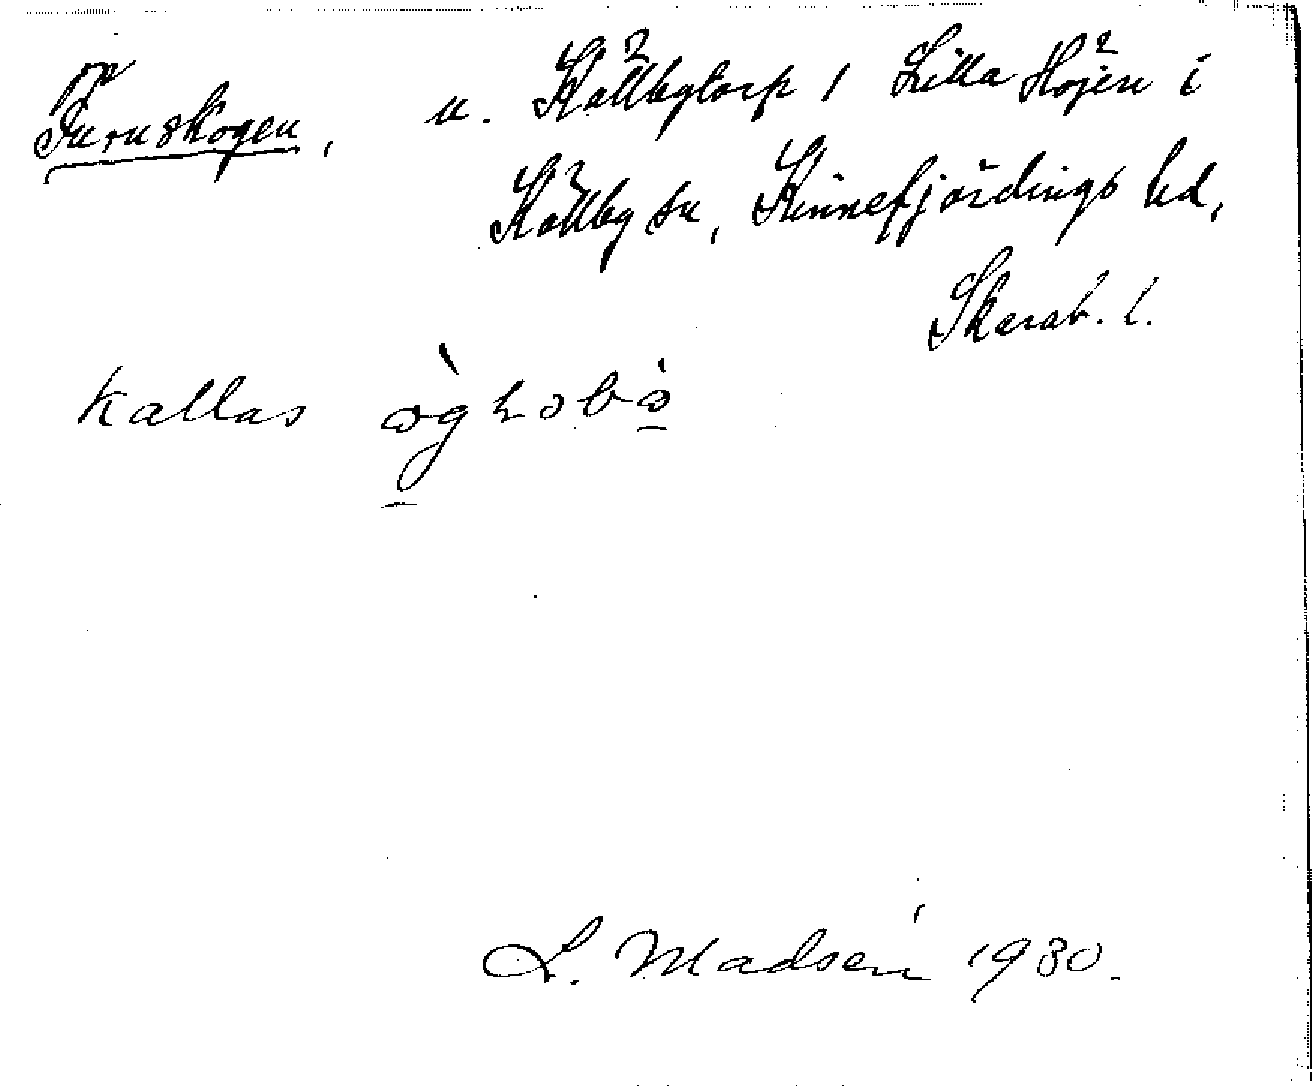 Furuskogen, u. Källbytorp 1 Lilla Höjen i
Källby sn, Kinnefjördings hd,
Skarab. l.
kallas
L. Madsén 1930.